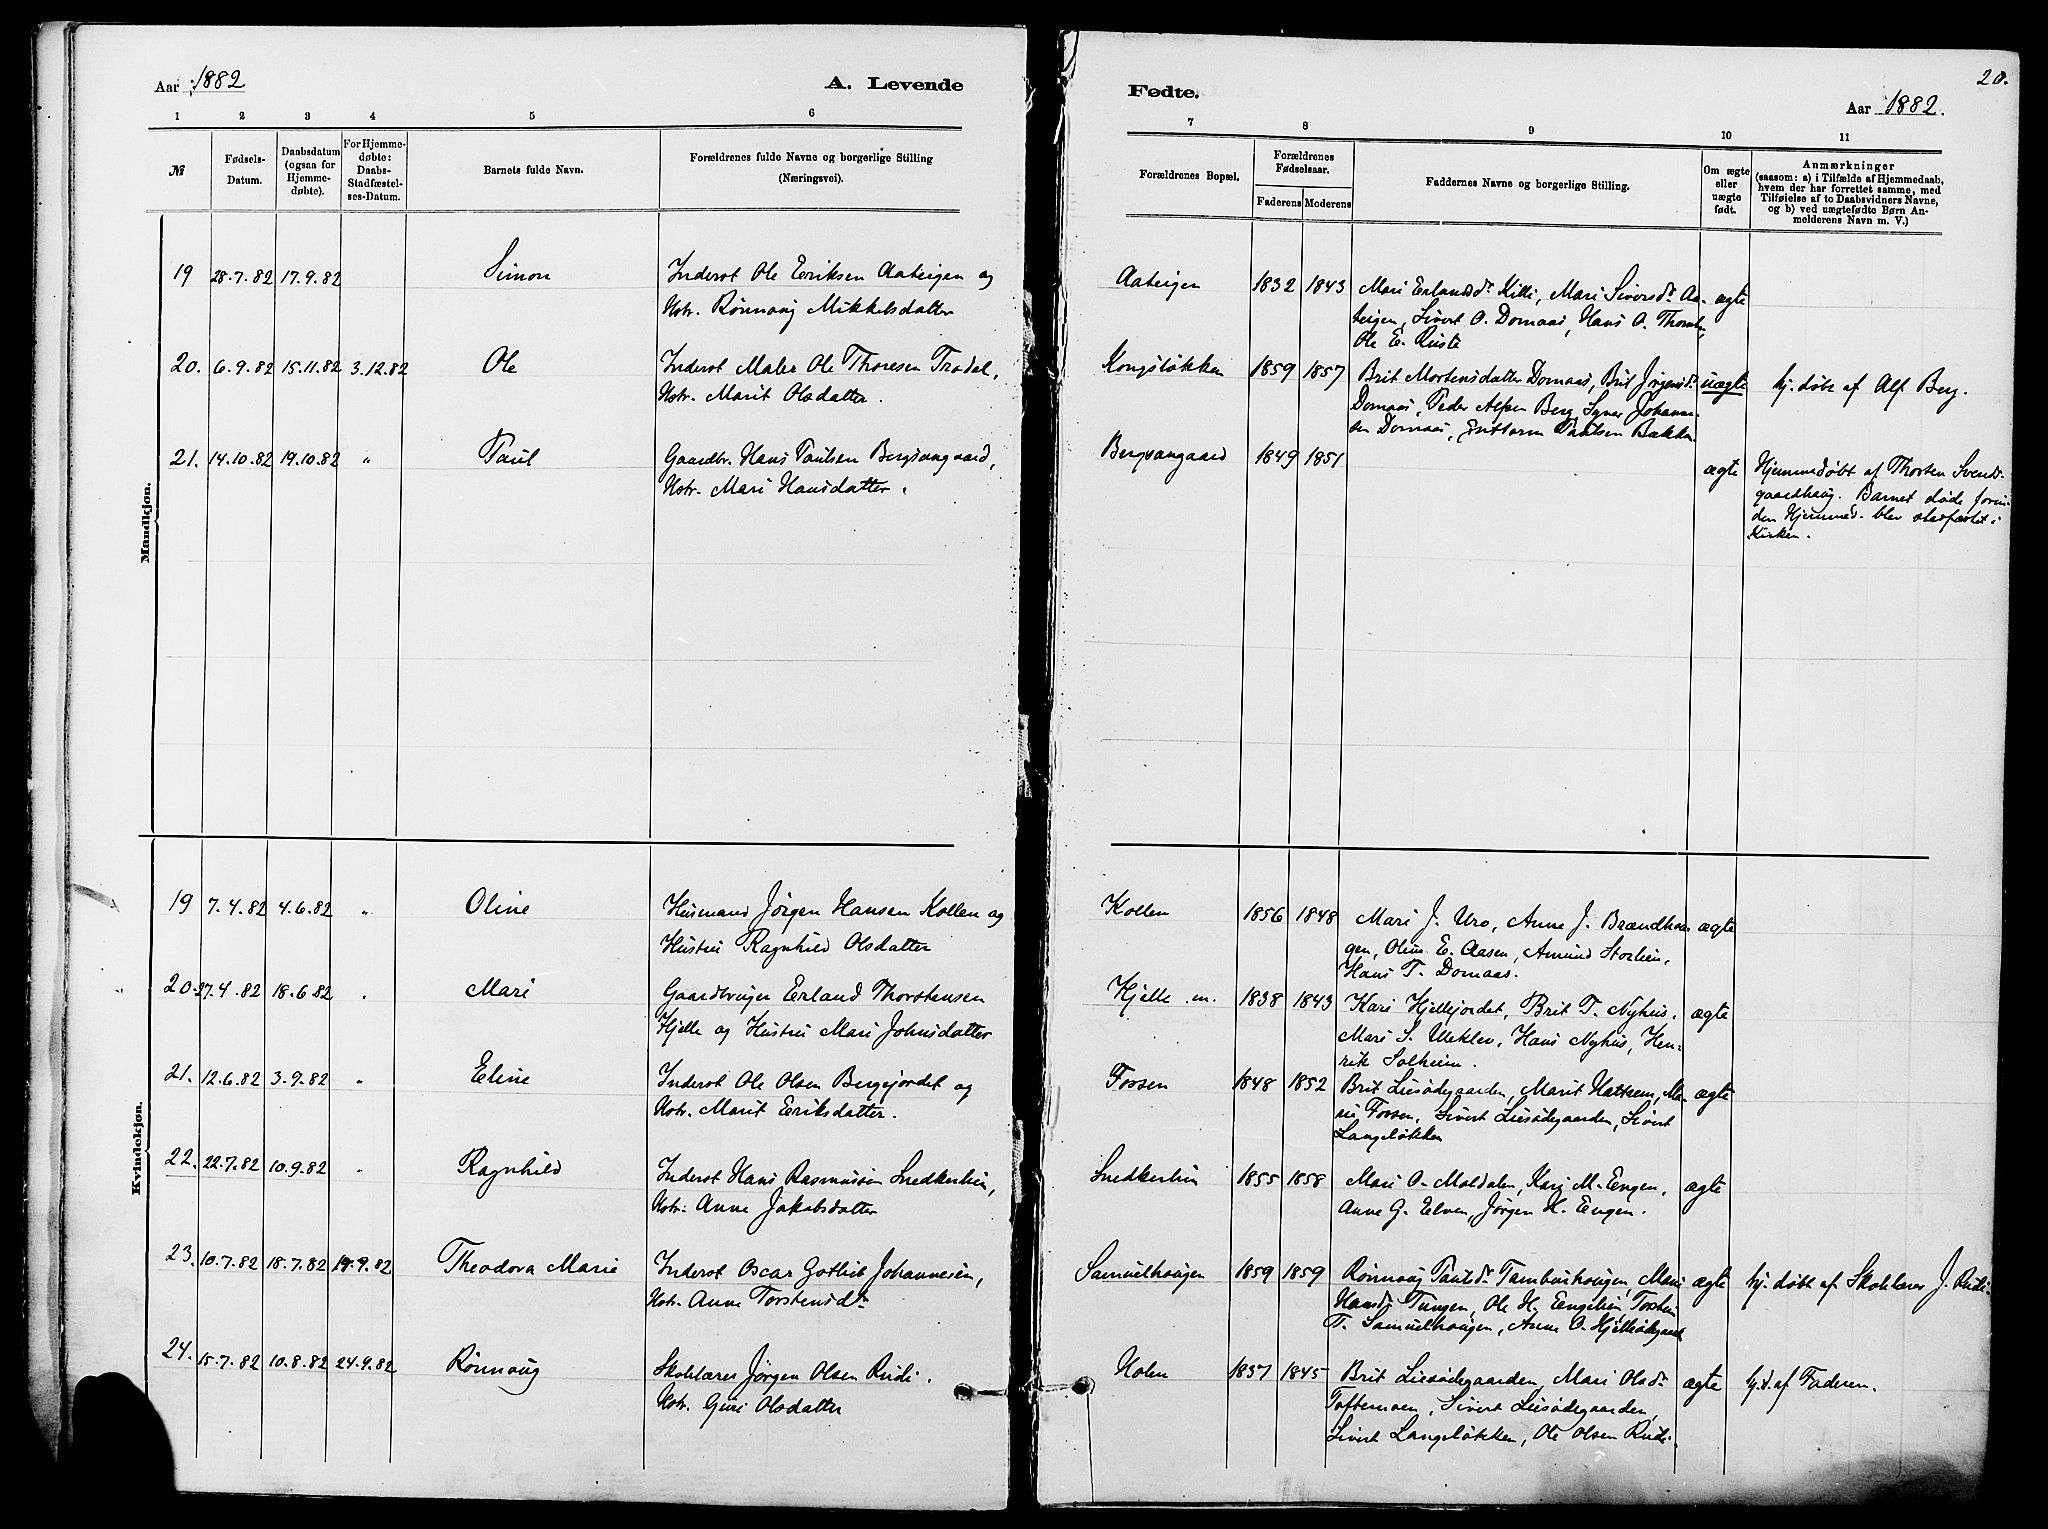 Aar 1882
A. Levende
Fødte.
Aar 1882.
20.
1 2 3 4 5 6
7 8 9 10 11
№
Fødsels-
Datum.
Daabsdatum
(ogsaa for
Hjemme-
døbte).
For Hjemme-
døbte:
Daabs-
Stadfæstel-
ses-Datum.
Barnets fulde Navn.
Forældrenes fulde Navne og borgerlige Stilling
(Næringsvei).
Forældrenes Bopæl.
Forældrenes
Fødselsaar.
Faderens Moderens
Faddernes Navne og borgerlige Stilling.
Om ægte
eller
uægte
født.
Anmærkninger
(saasom: a) i Tilfælde af Hjemmedaab,
hvem der har forrettet samme, med
Tilføielse af to Daabsvidners Navne,
og b) ved uægtefødte Børn An-
melderens Navn m. V.)
Mandkjøn.
19 28.7.82 17.9.82 Simon Inderst Ole Eriksen Aateigen og
Hstr. Rønnaug Mikkelsdatter
Aateigen 1832 1843 Mari Erlandsdr. Killi, Mari Siversdr. Aa- ægte
teigen, Sivert O. Domaas, Hans O.
Ole E. Ruste
20. 6.9.82 15.11.82 3.12.82 Ole Inderst Maler Ole Thoresen Trodal,
Hstr. Marit Olsdatter.
Kongsløkken 1859 1857 Brit Mortensdatter Domaas, Brit Jørgensdr. uægte hj. døbt af Alf Berg.
Domaas, Peder Alfsen Berg, Syver Johanne-
sen Domaas, Guttorm Paulsen Bækken
21. 14.10.82 19.10.82 " Paul Gaardbr. Hans Paulsen Bergsvangaard,
Hstr. Mari Hansdatter.
Bergsvangaard 1849 1851 ægte Hjemmedøbt af Thorsten Svends-
gaardhaug. Barnet døde forin-
den Hjemmed. blev stadfæstet i
Kirken.
Kvindekjøn.
19 7.4.82 4.6.82 " Oline Husmand Jørgen Hansen Kollen og
Hustru Ragnhild Olsdatter
Kollen 1856 1848 Mari J. Uro, Anne J. Brændhau- ægte
gen, Oline E. Aasen, Amund Storlien,
Hans T. Domaas.
20. 27.4.82 18.6.82 " Mari Gaardbruger Erland Thorstensen
Hjelle og Hustru Mari Johnsdatter
Hjelle m. 1838 1843 Kari Hjellejordet, Brit T. Nyhus, ægte
Mari S. Uleklev, Hans Nyhus, Hen-
rik Solheim.
21. 12.6.82 3.9.82 " Eline Inderst Ole Olsen Bergejordet og
Hstr. Marit Eriksdatter.
Fossen 1848 1852 Brit Liesødegaarden, Marit Hattrem, Ma- ægte
ri Fossen, Sivert Liesødegaarden, Sivert
Langeløkken
22. 22.7.82 10.9.82 " Ragnhild Inderst Hans Rasmussen Snedkerlien,
Hstr. Anne Jakobsdatter
Snedkerlien 1855 1858 Mari O. Moldalen, Kari M. Engen, ægte
Anne G. Elven, Jørgen H. Engen.
23. 10.7.82 18.7.82 17.9.82 Theodora Marie Inderst Oscar Gotlieb Johannesen,
Hstr. Anne Torstensdr.
Samuelhougen 1859 1859 Rønnaug Paulsdr. Tamburhougen, Mari ægte hj. døbt af Skolelærer J. Rudi.
Hansdr. Tungen, Ole H. Engelien, Torsten
T. Samuelhougen, Anne O. Hjelleødegaard
24. 15.7.82 10.8.82 24.9.82 Rønnaug Skolelærer Jørgen Olsen Rudi.
Hstr. Guri Olsdatter
Holen 1837 1845 Brit Liesødegaarden, Mari Olsdr. ægte hj. d. af Faderen.
Toftemoen, Sivert Liesødegaarden,
Sivert Langeløkken, Ole Olsen Rudi.